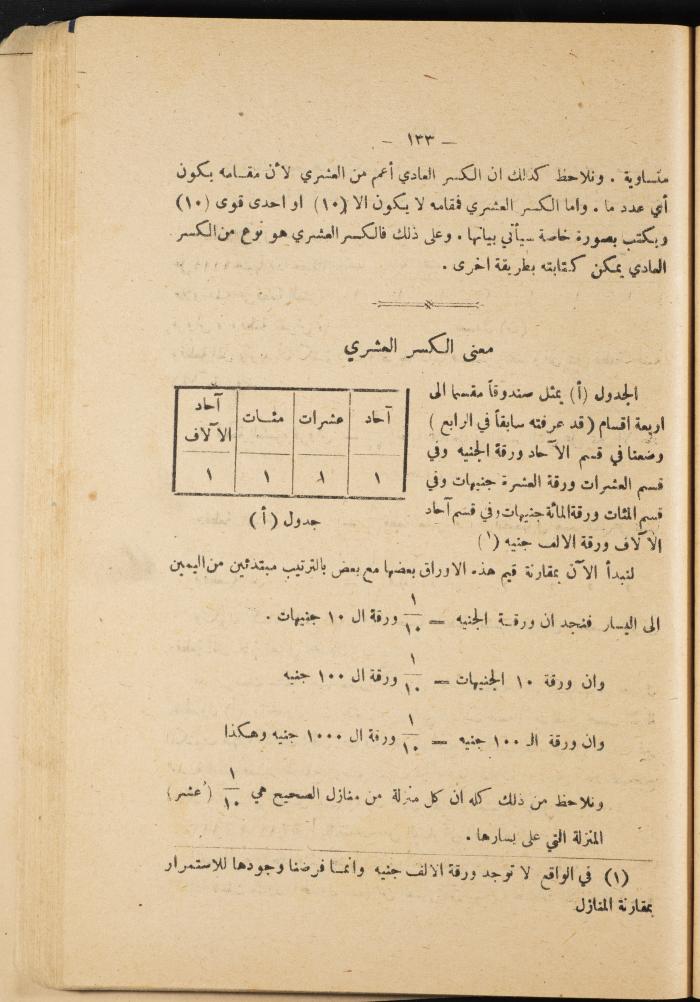 — ١٣٣ —
متساوية . ونلاحظ كذلك ان الكسر العادي أعم من العشري لأن مقامه يكون
أي عدد ما . واما الكسر العشري فمقامه لا يكون الا (١٠) او احدى قوى (١٠)
ويكتب بصورة خاصة سيأتي بيانها . وعلى ذلك فالكسر العشري هو نوع من الكسر
العادي يمكن كتابته بطريقة اخرى .
معنى الكسر العشري
الجدول (أ) يمثل صندوقاً مقسما الى
اربعة اقسام ( قد عرفته سابقاً في الرابع )
وضعنا في قسم الآحاد ورقة الجنيه وفي
قسم العشرات ورقة العشرة جنيهات وفي
قسم المئات ورقة المائة جنيهات وفي قسم آحاد
الآلاف ورقة الالف جنيه (١)
آحاد | عشرات | مئات | آحاد الآلاف
١ | ١ | ١ | ١
جدول ( أ )
لنبدأ الآن بمقارنة قيم هذه الاوراق بعضها مع بعض بالترتيب مبتدئين من اليمين
الى اليسار فنجد ان ورقة الجنيه = ١/١٠ ورقة ال ١٠ جنيهات .
وان ورقة ١٠ الجنيهات = ١/١٠ ورقة ال ١٠٠ جنيه
وان ورقة ال ١٠٠ جنيه = ١/١٠ ورقة ال ١٠٠٠ جنيه وهكذا
ونلاحظ من ذلك كله ان كل منزلة من منازل الصحيح هي ١/١٠ (عُشر)
المنزلة التي على يسارها .
(١) في الواقع لا توجد ورقة الالف جنيه وانمـا فرضنا وجودها للاستمرار
بمقارنة المنازل